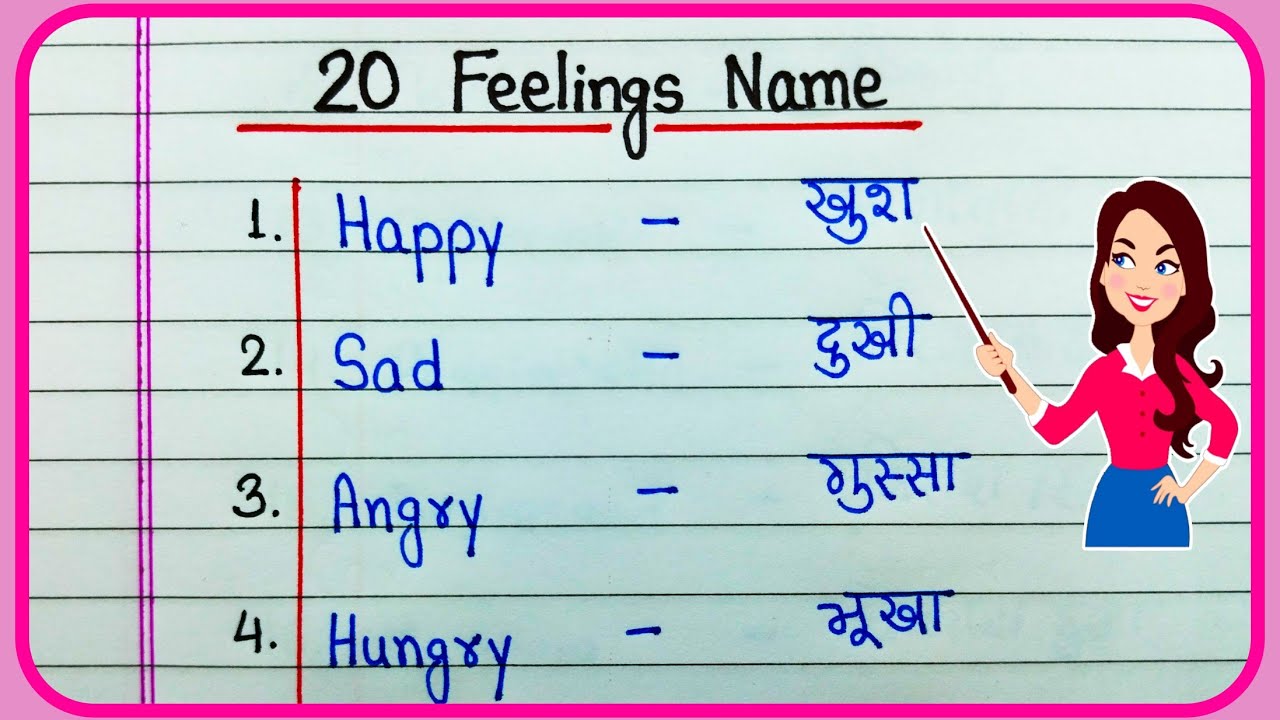 20 Feelings Name
1. Happy - खुश
2. Sad - दुखी
3. Angry - गुस्सा
4. Hungry - भूखा